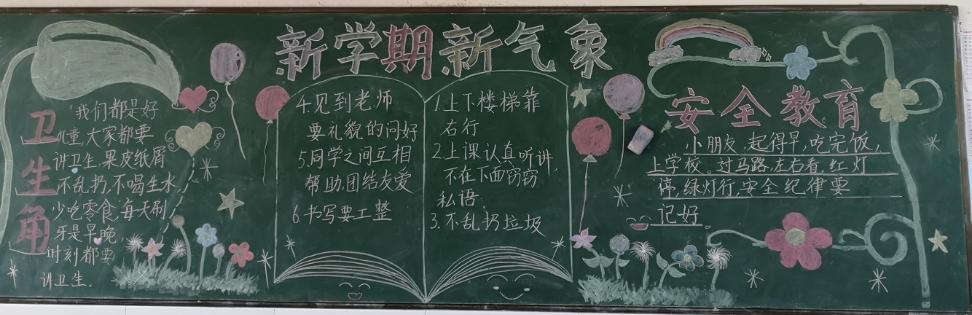 新学期新气象
卫生角
我们都是好
儿童,大家都要
讲卫生,果皮纸屑
不乱扔,不喝生水,
少吃零食,每天刷
牙是早晚,
时刻都要
讲卫生.
4.见到老师
要礼貌的问好
5.同学之间互相
帮助,团结友爱
6.书写要工整
1.上下楼梯靠
右行
2.上课认真听讲
不在下面窃窃
私语.
3.不乱扔垃圾
安全教育
小朋友,起得早,吃完饭,
上学校.过马路,左右看,红灯
停,绿灯行,安全纪律要
记好.